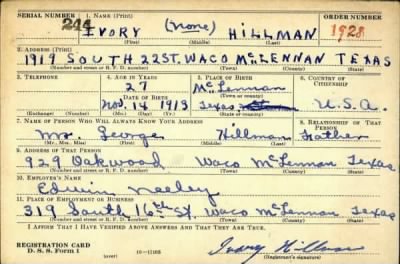 SERIAL NUMBER 1. NAME (Print) ORDER NUMBER
244 IVORY (None) HILLMAN 1928
(First) (Middle) (Last)
2. ADDRESS (Print)
1919 SOUTH 22 ST, WACO McLENNAN TEXAS
(Number and street or R. F. D. number) (Town) (County) (State)
3. TELEPHONE 4. AGE IN YEARS 5. PLACE OF BIRTH 6. COUNTRY OF CITIZENSHIP
27 McLennan
(Town or county)
DATE OF BIRTH
Nov. 14 1913 Texas U.S.A.
(Exchange) (Number) (Mo.) (Day) (Yr.) (State or country)
7. NAME OF PERSON WHO WILL ALWAYS KNOW YOUR ADDRESS 8. RELATIONSHIP OF THAT PERSON
Mr. George Hillman Father
(Mr., Mrs., Miss) (First) (Middle) (Last)
9. ADDRESS OF THAT PERSON
929 Oakwood Waco McLennan Texas
(Number and street or R. F. D. number) (Town) (County) (State)
10. EMPLOYER'S NAME
Edwin Neeley
11. PLACE OF EMPLOYMENT OR BUSINESS
319 South 16th St. Waco McLennan Texas
(Number and street or R. F. D. number) (Town) (County) (State)
I AFFIRM THAT I HAVE VERIFIED ABOVE ANSWERS AND THAT THEY ARE TRUE.
REGISTRATION CARD
D. S. S. Form 1 (over) Ivory Hillman
(Registrant's signature)